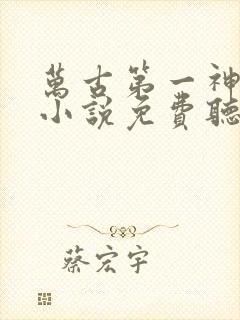 萬古第一神
小說免費聽
蔡宏宇